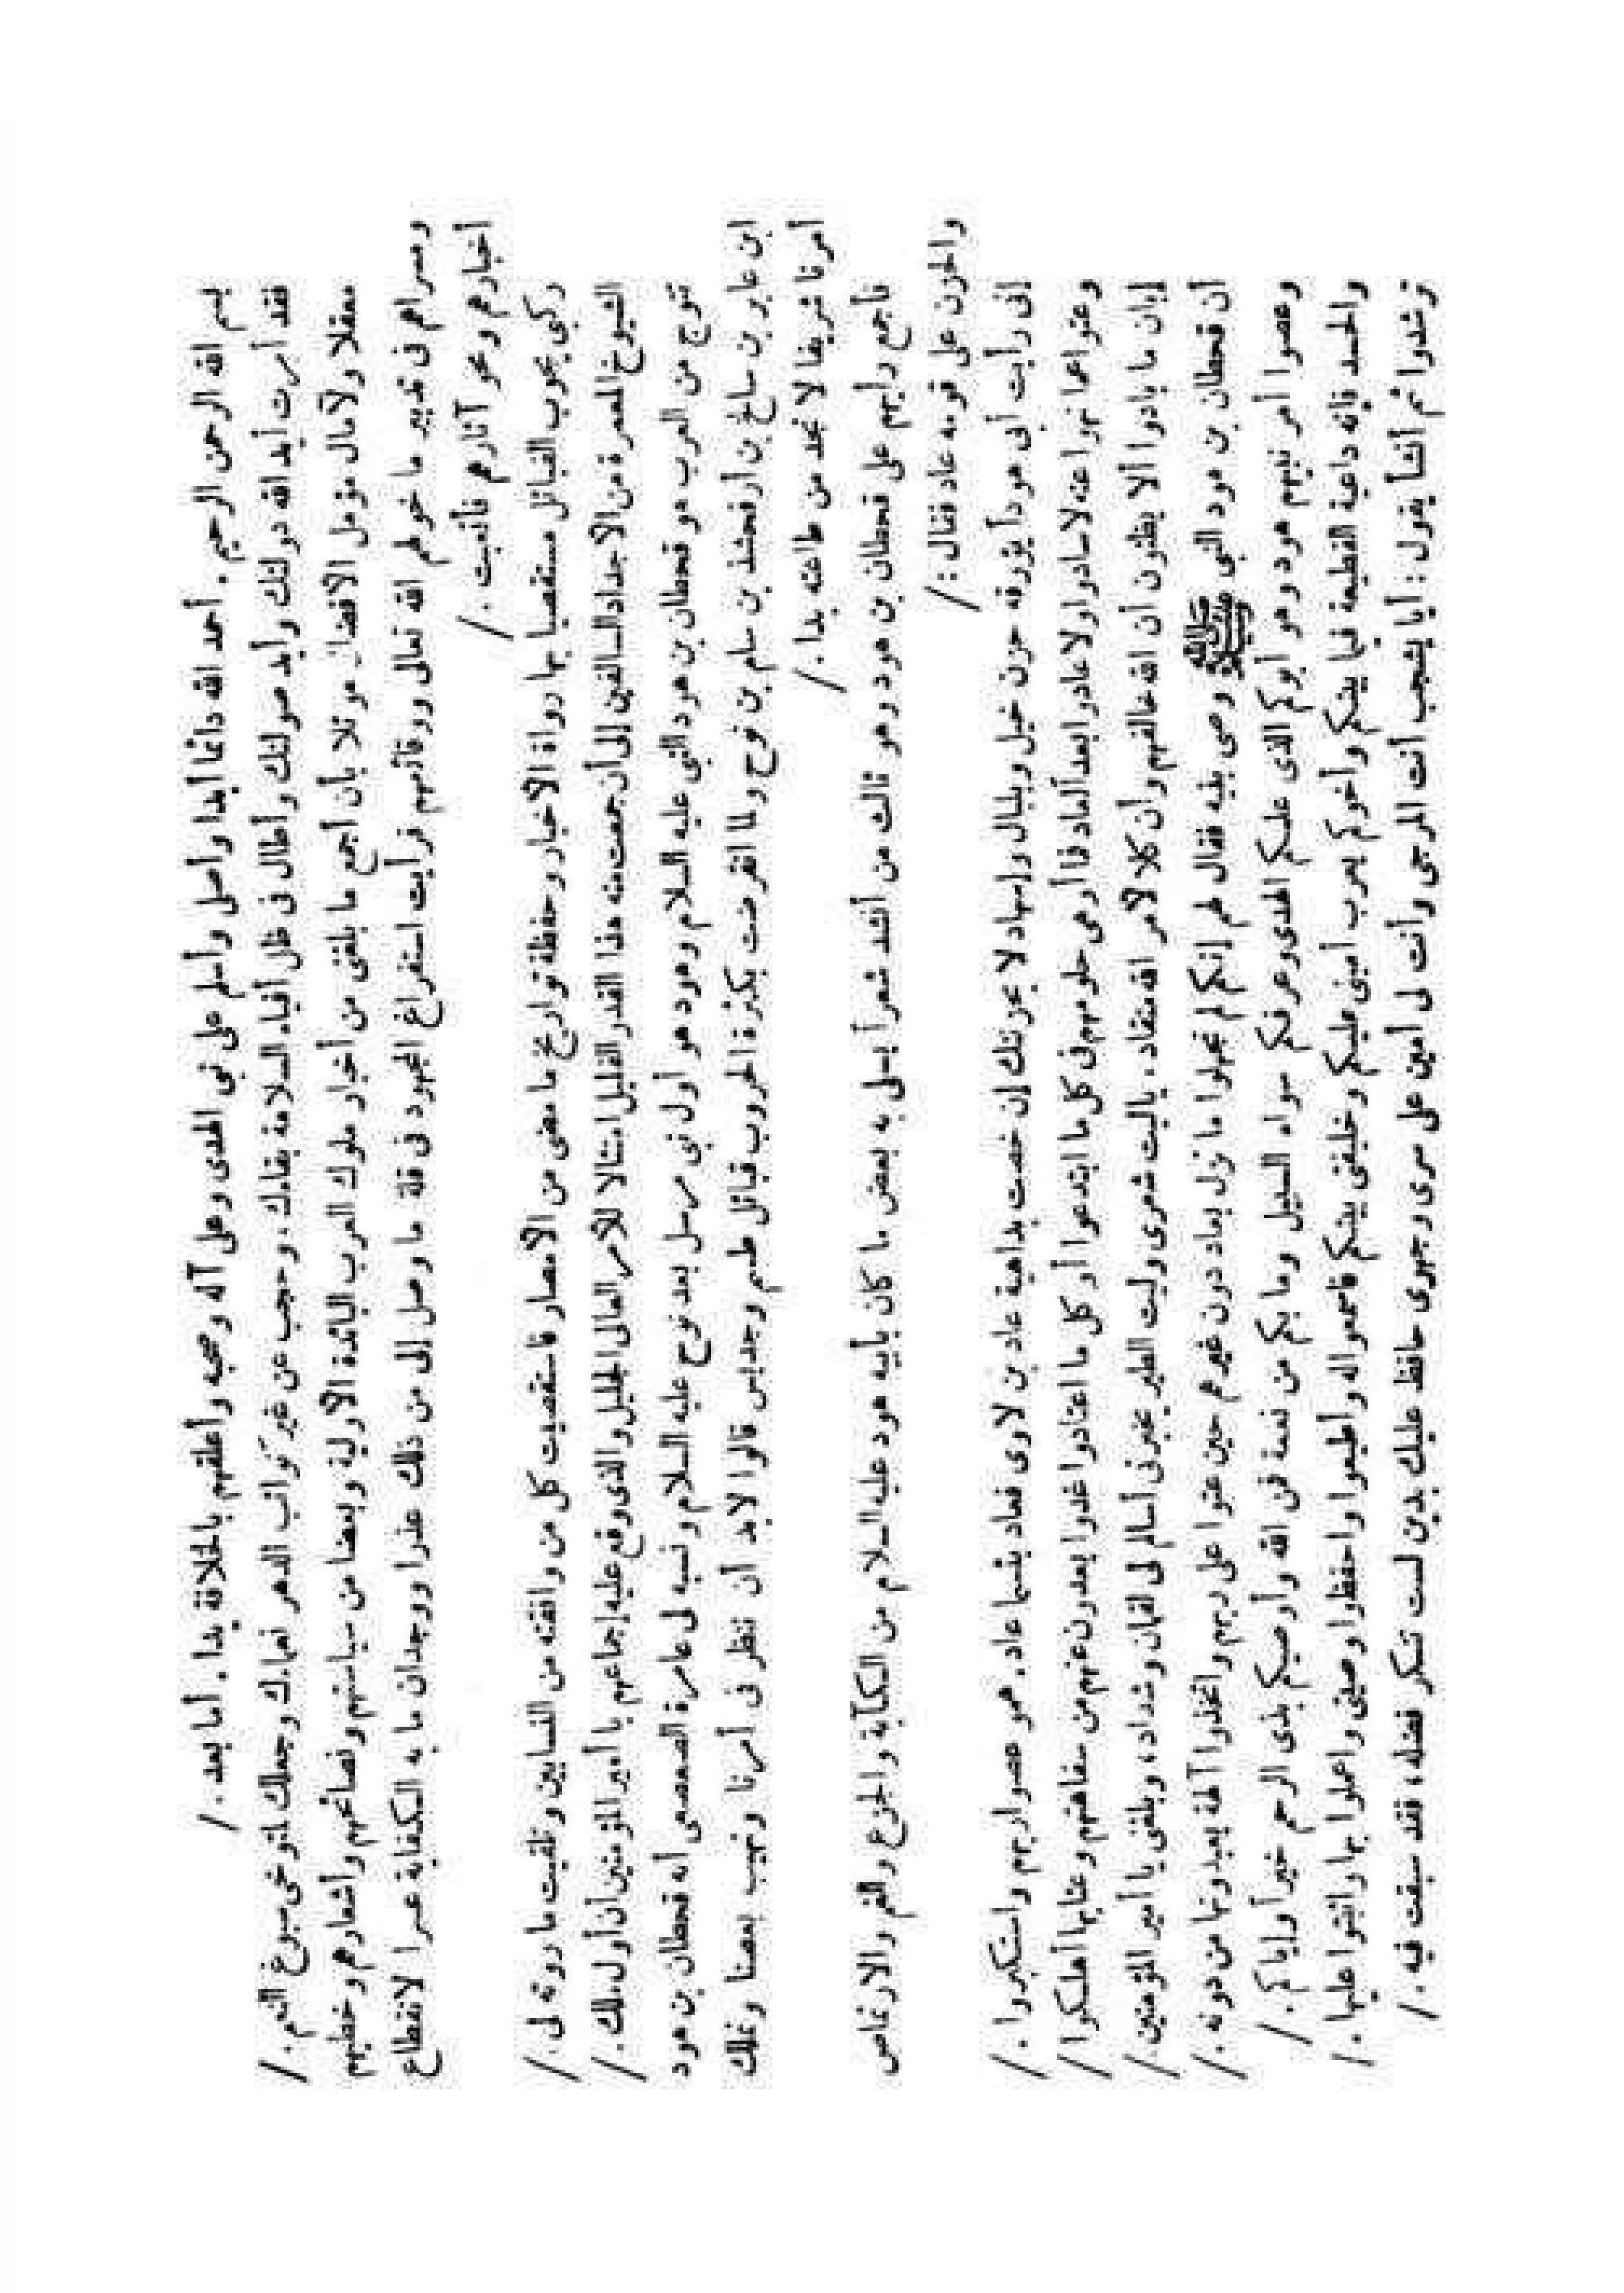 بسم الله الرحمن الرحيم . أحمد الله دائما أبدا وأصلى وأسلم على نبى الهدى وعلى آله وصحبه وأعلقهم بالخلافة يدا . أما بعد . /
فقد أمرت أيد الله دولتك وأيد صولتك وأطال فى ظل أفياء السلامة بقاءك ، وحجب عن غير نوائب الدهر نعماءك وجعلك لمتوخى سبوغ النعم . /
معقلا ولآمال مؤمل الأفضال موئلا بأن أجمع ما بلغنى من أخبار ملوك العرب البائدة الأولية وبعضا من سياستهم ونصائحهم وأشعارهم وخطبهم
ومسراهم فى تدبير ما خولهم الله تعالى ووقائعهم فرأيت استفراغ المجهود فى قلة ما وصل إلى من ذلك عذرا ووجدان ما به الكفاية عسرا لانقطاع
أخبارهم ومحو آثارهم فأتعبت . /
ركبى بحوب القبائل مستقصيا بها رواة الأخبار وحفظة تواريخ ما مضى من الأمصار فاستقصيت كل من وافقته من النسابين وتلقيت ما روته لى . /
الشيوخ المعمرة من الأجداد السالفين إلى أن جمعت منه هذا القدر القليل امتثالا للأمر العالى الجليل والذى وقع عليه إجماعهم يا أمير المؤمنين أن أول ملك . /
تتوج من العرب هو قحطان بن هود النبى عليه السلام وهود هو أول نبى مرسل بعد نوح عليه السلام ونسبه لى عامرة الصعصعى أنه قحطان بن هود
ابن عابر بن سالخ بن أرفحشذ بن سام بن نوح ولما انقرضت بكثرة الحروب قبائل طسم وجديس قالوا لابد أن ننظر فى أمرنا ونهيب بعضنا ونملك
أمرنا شريفا لا نجد من طاعته بدا . /
فأجمع رأيهم على قحطان بن هود وهو ثالث من أنشد شعرا يسلى به بعض ما كان بأبيه هود عليه السلام من الكآبة والجزع والغم والارتماص
والحزن على قومه عاد فقال : /
إنى رأيت أبى هودا يؤرقه حزن خيل وبلبال وإسهاد لا يحزنك إن خصت بداهية عاد بن لاوى فعاد بئسما عاد . همو عصوا ربهم واستكبروا . /
وعتوا عما نهوا عنه لا سادوا ولا عادوا بعدا لعاد فما أوهى حلومهم فى كل ما ابتدعوا أو كل ما اعتادوا غدوا يعدون عنهم من سفاهتهم وعتابها أهلكوا /
إبان ما بادوا ألا يظنون أن الله غالبهم وأن كلا لأمر الله منقاد . ياليت شعرى وليت الطير يخبرنى أسالم لى لقمان وشداد ، وبلغنى يا أمير المؤمنين . /
أن قحطان بن هود النبى ﷺ وصى بنيه فقال لهم إنكم لم تجهلوا ما نزل بعاد دون غيرهم حين عتوا على ربهم واتخذوا آلهة يعبدونها من دونه . /
وعصوا أمر نبيهم هود وهو أبوكم الذى علمكم الهدى وعرفكم سواء السبيل وما بكم من نعمة فمن الله وأوصيكم بذى الرحم خيرا وإياكم . /
والحسد فإنه داعية القطيعة فيما بينكم وأخوكم يعرب أمينى عليكم وخليفتى بينكم فاسمعوا له وأطيعوا واحفظوا وصيتى واعملوا بها واثبتوا عليها . /
ترشدوا ثم أنشأ يقول : أيا يشجب أنت المرجى وأنت لى أمين على سرى وجهرى حافظ عليك بدين لست تنكر فضله ، فقد سبقت فيه . /